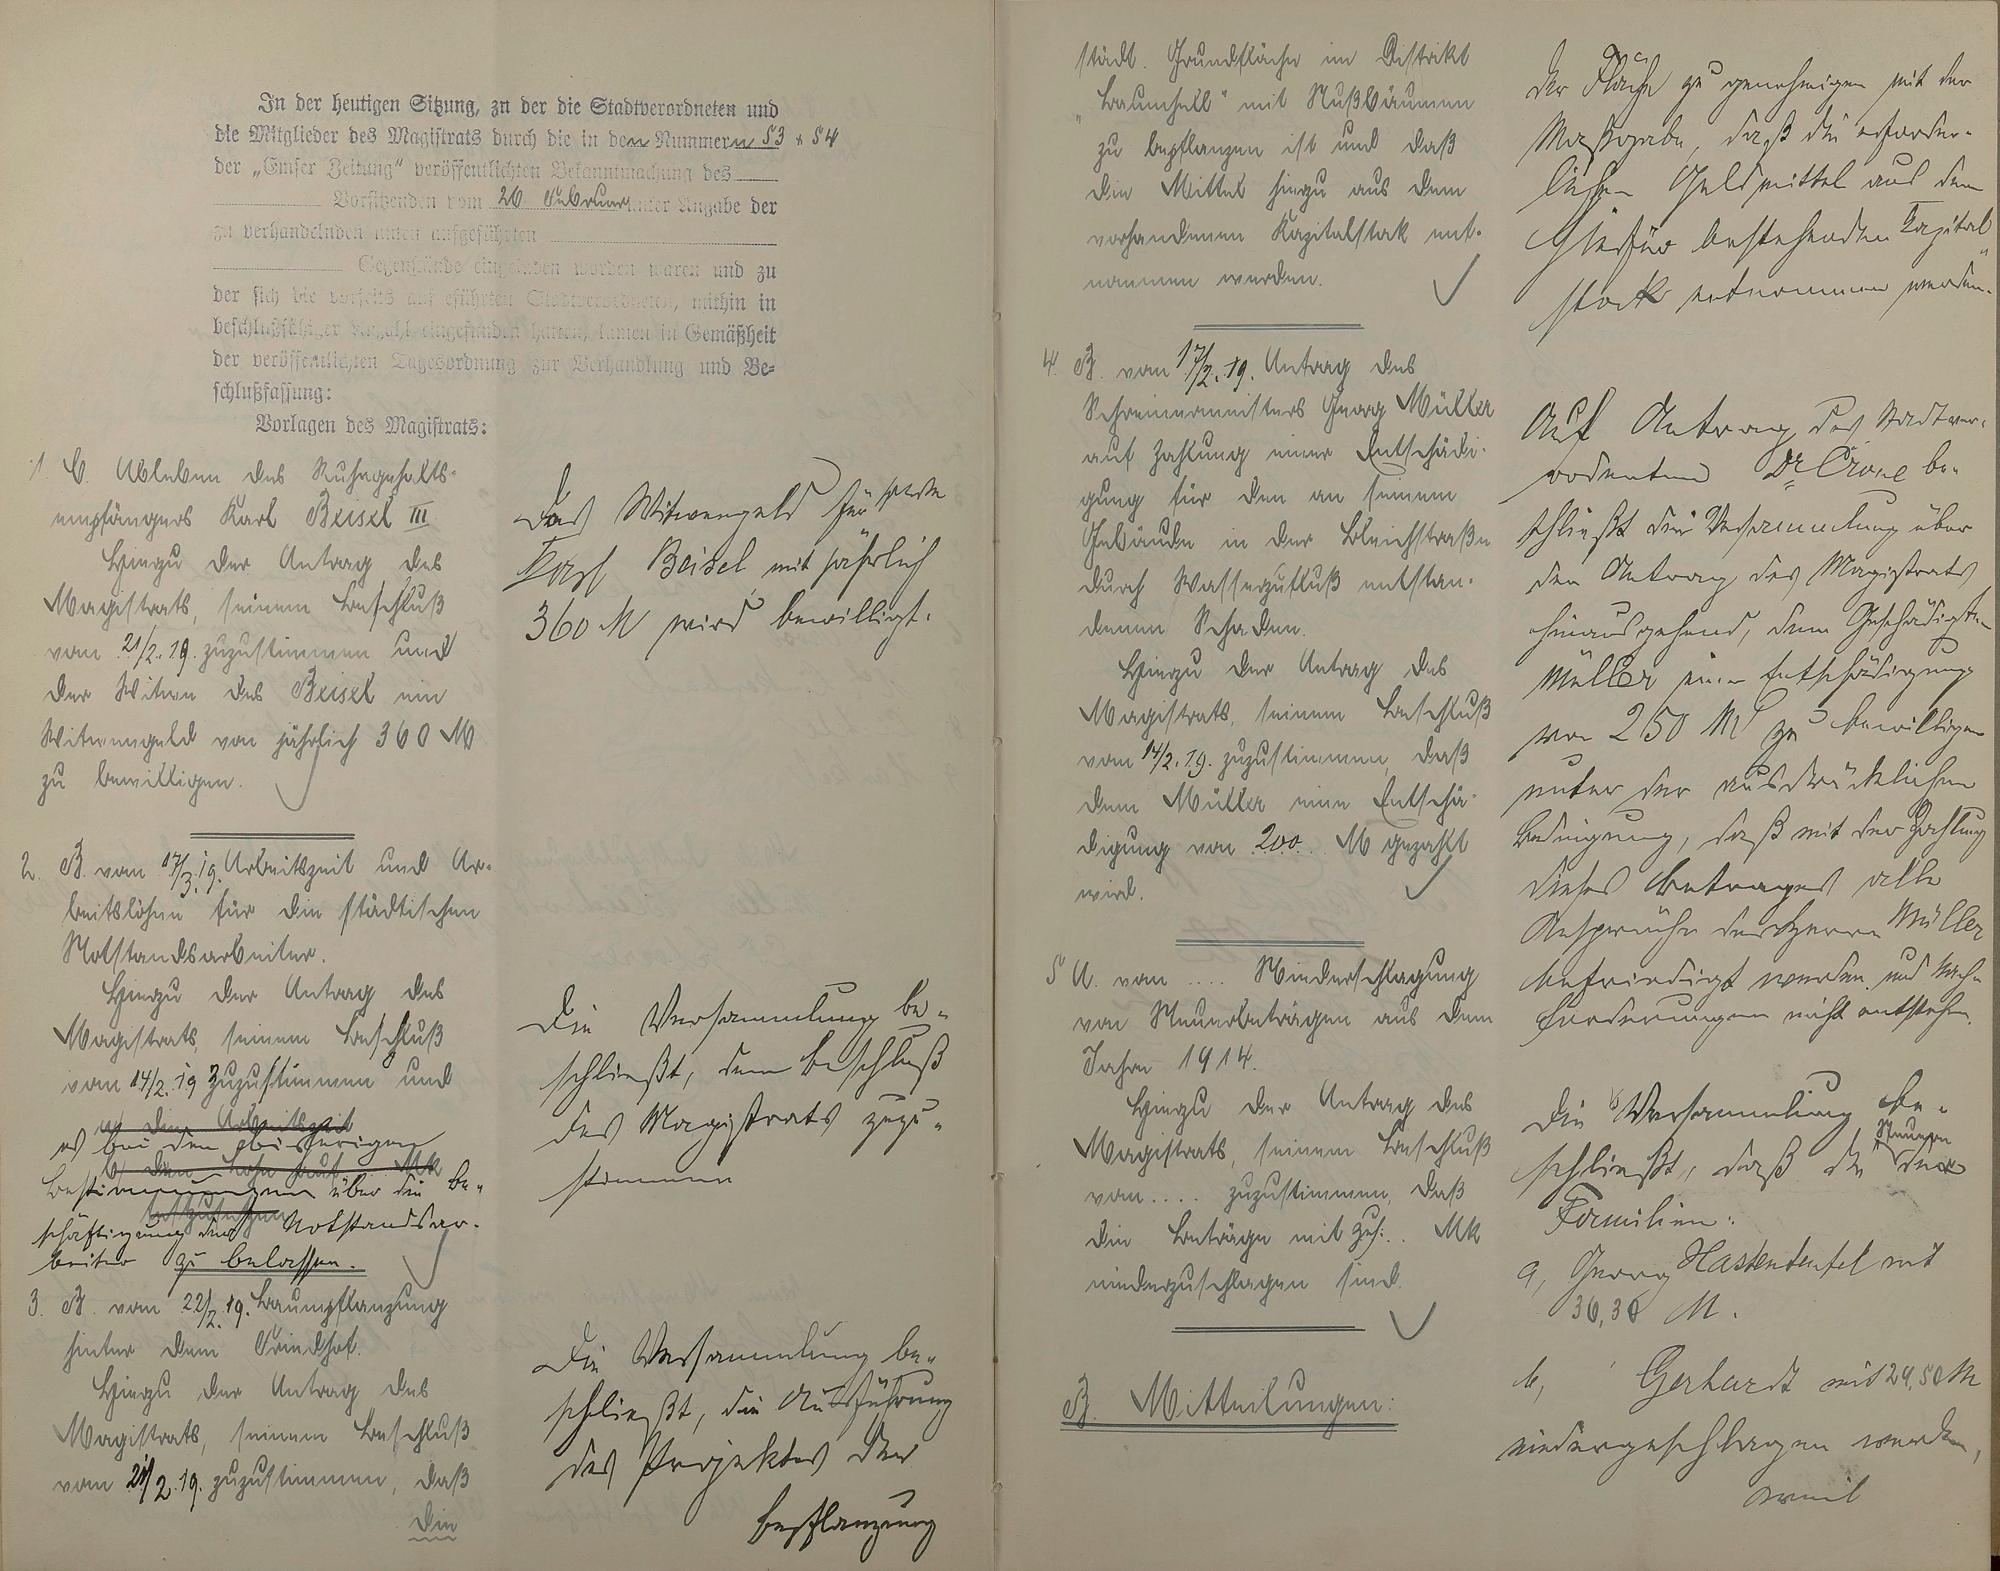 In der heutigen Sitzung, zu der die Stadtverordneten und
die Mitglieder des Magistrats durch die in den Nummern 53 + 54
der „Emser Zeitung“ veröffentlichten Bekanntmachung des
Vorsitzenden vom 26. Februar unter Angabe der
zu verhandelnden unten aufgeführten
Gegenstände eingeladen worden waren und zu
der sich die vorseits aufgeführten Stadtverordneten, mithin in
beschlußfähiger Anzahl eingefunden hatten, kamen in Gemäßheit
der veröffentlichten Tagesordnung zur Verhandlung und Be-
schlußfassung:
Vorlagen des Magistrats:
1. C. Ableben des Ruhegehalts-
empfängers Karl Beisel III
Hierzu der Antrag des
Magistrats, seinem Beschluß
vom 21/2. 19. zuzustimmen und
der Witwe des Beisel ein
Witwengeld von jährlich 360 M
zu bewilligen.
Das Witwengeld für
Karl Beisel mit jährlich
360 M wird bewilligt.
2. B. vom 17/3. 19. Arbeitszeit und Ar-
beitslöhne für die städtischen
Notstandsarbeiter.
Hierzu der Antrag des
Magistrats, seinem Beschluß
vom 14/2. 19 zuzustimmen und
a) die Arbeitszeit
es bei den bisherigen
b) den Lohn auf Mk
Bestimmungen über die Be-
festzusetzen
schäftigung der Notstandsar-
beiter zu belassen.
Die Versammlung be-
schließt, dem Beschluß
des Magistrats zuzu-
stimmen
3. B. vom 22/2. 19. Baumpflanzung
hinter dem Friedhof.
Hierzu der Antrag des
Magistrats, seinem Beschluß
vom 21/2. 19. zuzustimmen, daß
die
Die Versammlung be-
schließt, die Ausführung
des Projektes der
Bepflanzung
städt. Grundfläche im Distrikt
„Baumhell“ mit Nußbäumen
zu bepflanzen ist und daß
die Mittel hierzu aus dem
vorhandenen Kapitalstock ent-
nommen werden.
der Fläche zu genehmigen mit der
Maßgabe, daß die erforder-
lichen Geldmittel aus dem
hierfür bestehenden Kapital
stock entnommen werden.
4. B. vom 17/2. 19. Antrag des
Schreinermeisters Georg Müller
auf Zahlung einer Entschädi-
gung für den an seinem
Gebäude in der Bleichstraße
durch Wasserzufluß entstan-
denen Schaden.
Hierzu der Antrag des
Magistrats, seinem Beschluß
vom 14/2. 19. zuzustimmen, daß
dem Müller eine Entschä-
digung von 200. M gezahlt
wird.
Auf Antrag des Stadtver-
ordneten Dr. Crone be-
schließt die Versammlung über
den Antrag des Magistrats
hinausgehend, dem Geschädigten
Müller eine Entschädigung
von 250 M zu bewilligen
unter der ausdrücklichen
Bedingung, daß mit der Zahlung
dieses Betrages alle
Ansprüche des Herrn Müller
befriedigt werden und Nach-
forderungen nicht entstehen.
5 A. vom .... Niederschlagung
von Steuerbeträgen aus dem
Jahre 1914.
Hierzu der Antrag des
Magistrats, seinem Beschluß
vom .... zuzustimmen, daß
die Beträge mit zus: .. Mk
niederzuschlagen sind.
Die Versammlung be-
schließt, daß die Steuern der
Familien:
a, Georg Hastenteufel mit
36,36 M.
b, Gerhardt mit 29,50 M
niedergeschlagen werden,
weil
B. Mitteilungen: